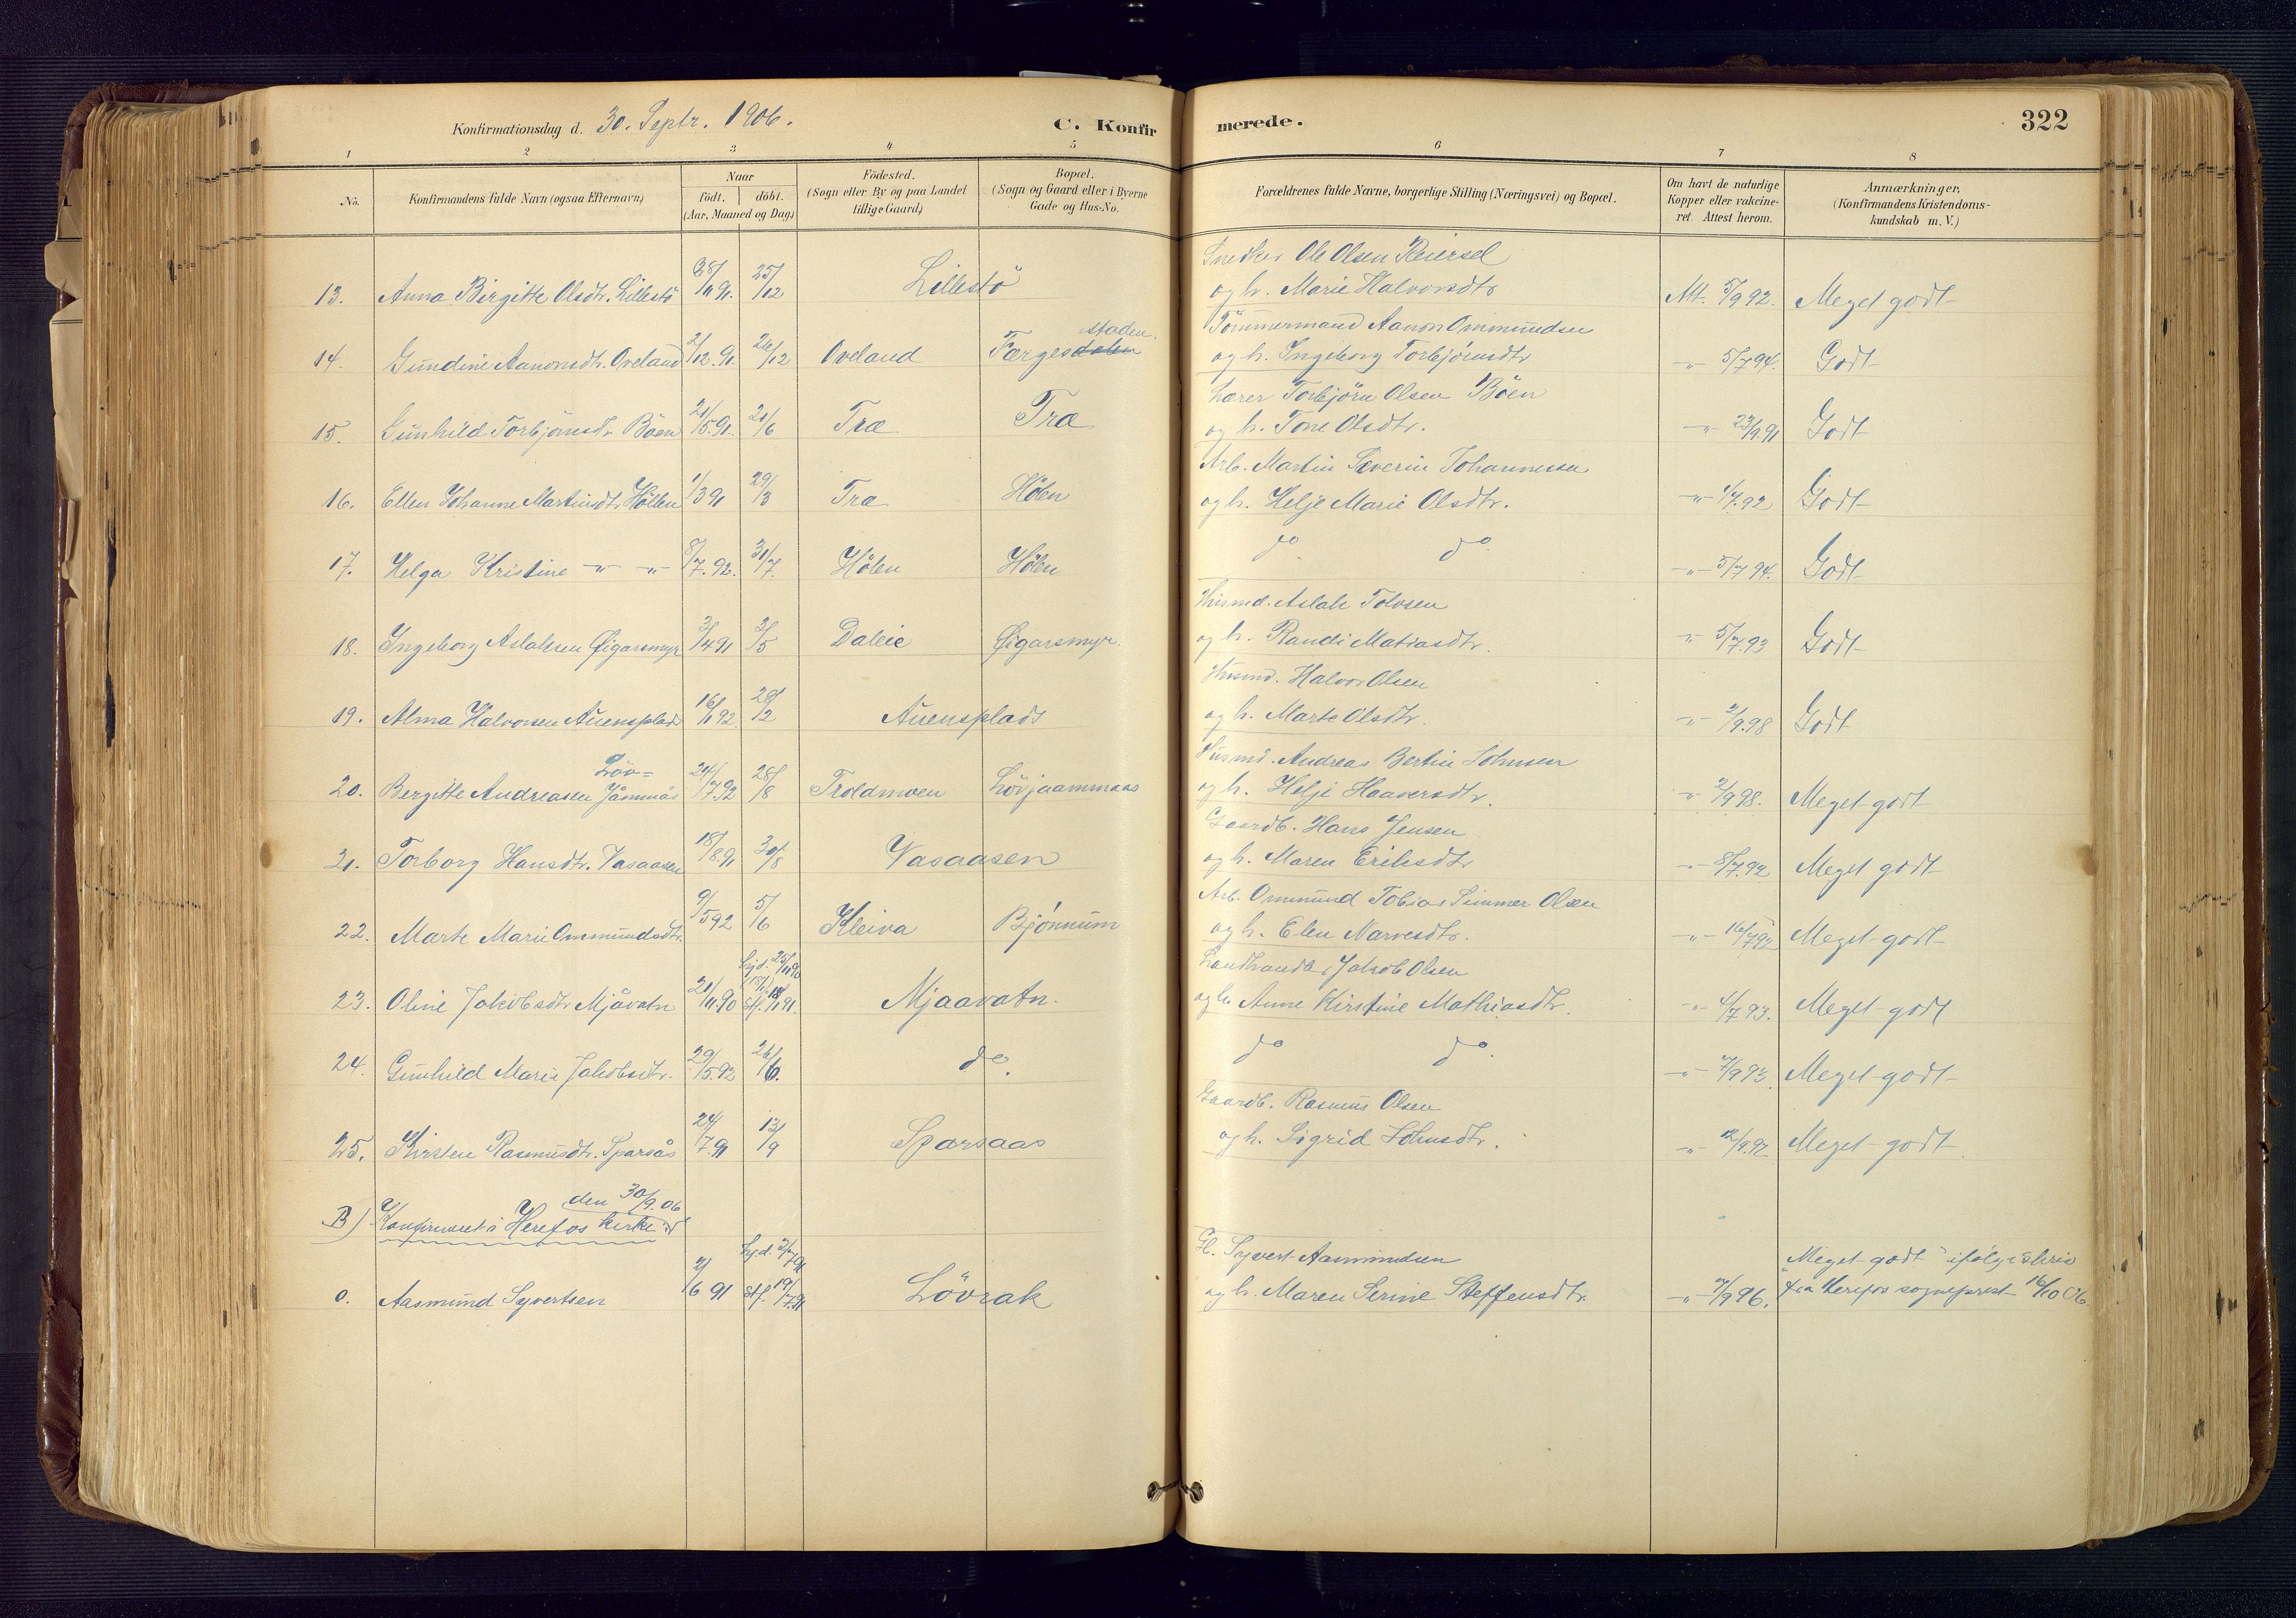 Konfirmationsdag d. 30. Septr. 1906.
C. Konfirmerede.
322
1 2 3 4 5 6 7 8
No.
Konfirmandens fulde Navn (ogsaa Efternavn)
Naar
födt. döbt.
(Aar, Maaned og Dag)
Födested.
(Sogn eller By og paa Landet
tillige Gaard)
Bopæl.
(Sogn og Gaard eller i Byerne
Gade og Hus-No.
Forældrenes fulde Navne, borgerlige Stilling (Næringsvei) og Bopæl.
Om havt de naturlige
Kopper eller vakcine-
ret. Attest herom.
Anmærkninger.
(Konfirmandens Kristendoms-
kundskab m. V.)
Snedker Ole Olsen Reiersel
13. Anna Birgitte Olsdtr. Lillestö 28/11 91. 25/12 Lillestö og h. Marie Halvorsdtr Att. 5/9 92. Meget godt
Tömmermand Aanon Ommundsen
14. Gundine Aanonsdtr. Oveland 2/12. 91. 26/12 Oveland Færgesdalen staden. og h. Ingeborg Torbjörnsdtr -"- 5/7 94. Godt
Lærer Torbjörn Olsen Böen
15. Gunhild Torbjörnsdtr. Böen 21/5. 91. 21/6 Træ Træ og h. Tone Olsdtr. -"- 23/9. 91 Godt
Arb. Martin Severin Johannesen
16. Ellen Johanne Martinsdtr. Höllen 1/3 91 29/3 Træ Hölen og h. Helje Marie Olsdtr. -"- 1/7. 92 Godt
do do
17. Helga Kristine -"- -"- 8/7. 92. 31/7. Hölen Hölen -"- 5/7 94. Godt
Husmd. Aslak Tolvsen
18. Ingeborg Aslaksen Øigarsmyr 3/4 91 3/5 Daleie Øigarsmyr. og h. Randi Matiasdtr. -"- 5/7. 93 Godt
Husmd. Halvor Olsen
19. Alma Halvorsen Auensplads 16/1 92 28/2 Auensplads og h. Marte Olsdtr. -"- 2/9. 98 Godt
Husmd. Andreas Bertin Johnsen
Löv=
20. Bergitte Andreasen Jåmmås 24/7. 92 28/8 Troldmoen Lövjaammaas og h. Helje Haaversdtr. -"- 2/9 98. Meget godt
Gaardb. Hans Jensen
21. Torborg Hansdtr. Vasaasen 18/8. 91 30/8 Vasaasen og h. Maren Eriksdtr -"- 8/7. 92 Meget godt
Arb. Ommund Tobias Simmer Olsen
22. Marte Marie Ommundsdtr. 9/5 92 5/6 Kleiva Bjönnum og h. Elen Narvesdtr. -"- 16/7 92 Meget godt
Landhandl. Jakob Olsen
Hjd. 25/11 90
23. Oline Jakobsdtr Mjåvatn 21/11. 90 stf. 18/1 91. Mjaavatn. og h. Anne Kirstine Mathiasdtr. -"- 4/7 93. Meget godt
do do
24. Gunhild Marie Jakobsdtr. 29/5. 92 26/6. do. -"- 7/9 93. Meget godt
Gaardb. Rasmus Olsen
25. Kirsten Rasmusdtr. Sparsås 24/7. 91 13/9 Sparsaas og h. Sigrid Johnsdtr. -"- 12/9. 92 Meget godt
den 30/9. 06
B) Konfirmeret i Herefos kirke
Fl. Syvert Aasmundsen
Hjd. 3/7 91
"Meget godt" ifölge skriv
0. Aasmund Syvertsen 2/6 91 stf. 19/7. 91 Lövrak og h. Maren Serine Steffensdtr. -"- 7/9 96. fra Herefos sogneprest 16/10 06.